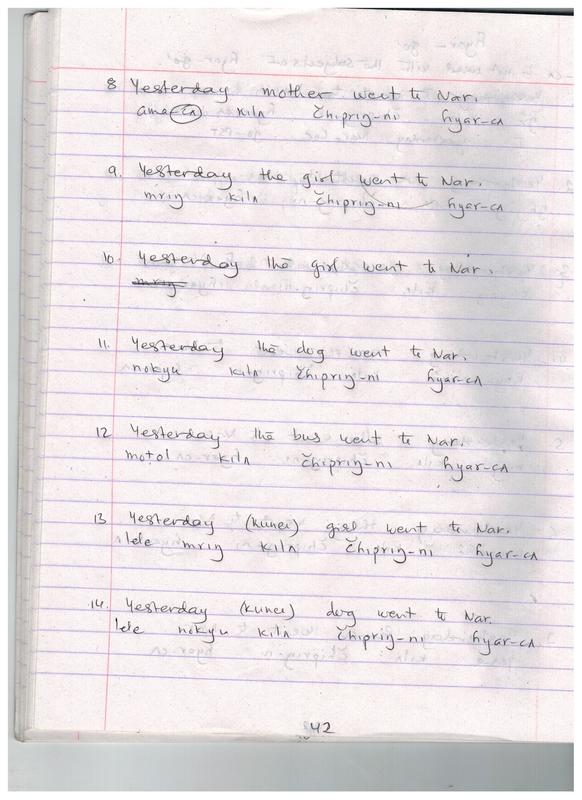 8 Yesterday mother went to Nar.
ama-cʌ kilʌ čhipriŋ-ni ɦyar-cʌ
9. Yesterday the girl went to Nar.
mriŋ kilʌ čhipriŋ-ni ɦyar-cʌ
10. Yesterday the girl went to Nar.
mriŋ
11. Yesterday the dog went to Nar.
nokyu kilʌ čhipriŋ-ni ɦyar-cʌ
12 Yesterday the bus went to Nar.
motol kilʌ čhipriŋ-ni ɦyar-cʌ
13 Yesterday (kunei) girl went to Nar.
lele mriŋ kilʌ čhipriŋ-ni ɦyar-cʌ
14. Yesterday (kunei) dog went to Nar.
lele nokyu kilʌ čhipriŋ-ni ɦyar-cʌ
42